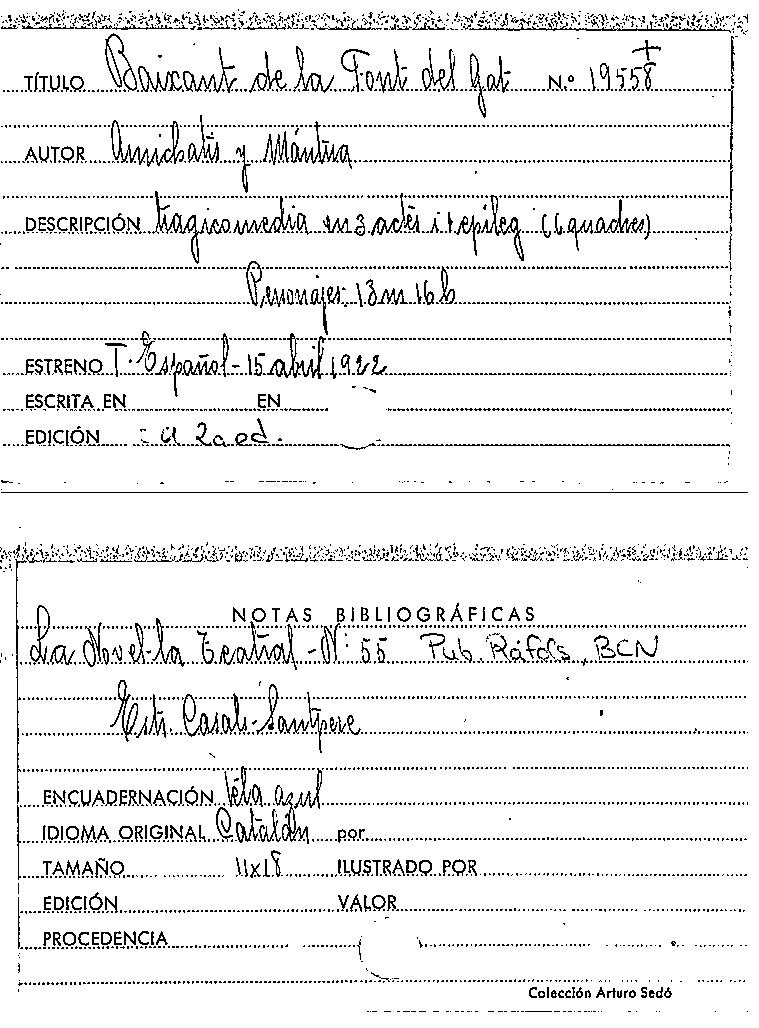 TÍTULO Baixant de la Font del Gat N.º 19558 +
AUTOR Amichatis y Mántua
DESCRIPCIÓN tragicomedia en 3 actes i epileg (6 quadres)
Personajes: 13 m 16 h
ESTRENO T. Español - 15 abril 1922
ESCRITA EN EN
EDICIÓN : a 2a ed.
NOTAS BIBLIOGRÁFICAS
La Novel·la Teatral - Nº 55 Pub. Ràfols, BCN
Estr. Casals-Santpere
ENCUADERNACIÓN tela azul
IDIOMA ORIGINAL Catalán por
TAMAÑO 11x18 ILUSTRADO POR
EDICIÓN VALOR
PROCEDENCIA
Colección Arturo Sedó